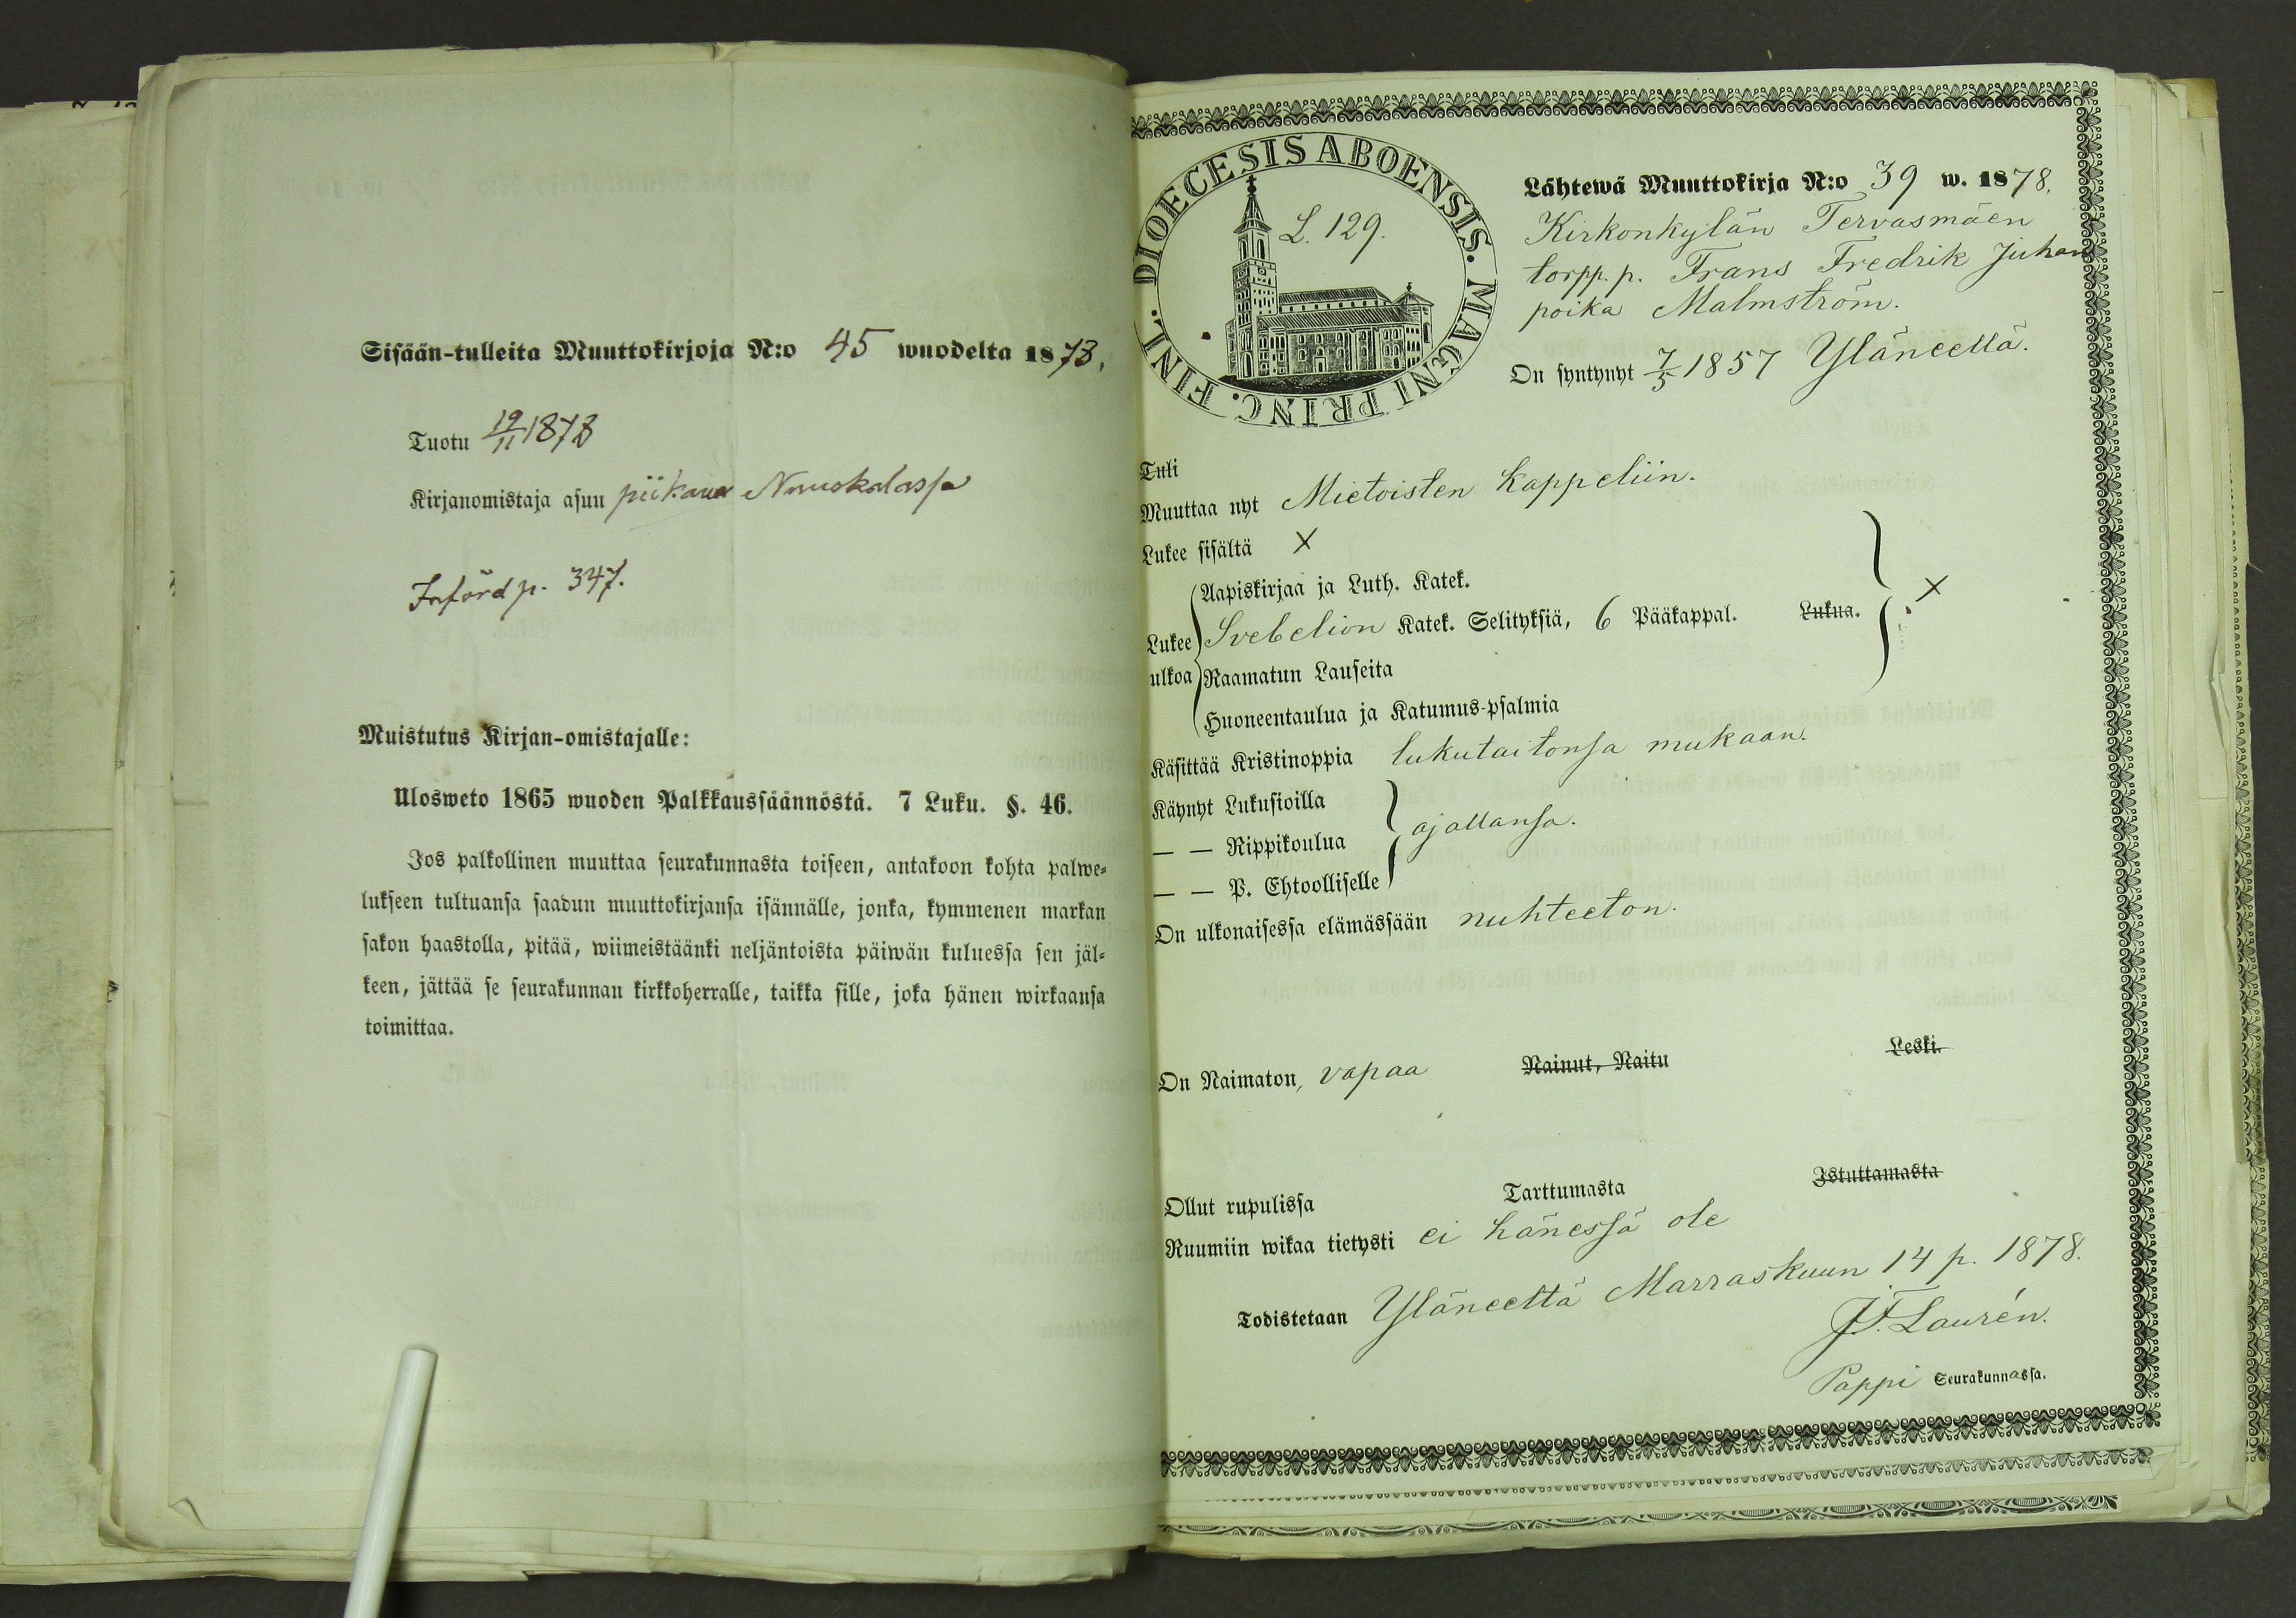 Sisään-tulleita Muuttokirjoja N:o 45 wuodelta 1878.
Tuotu 19/11 1878
Kirjanomistaja asuu piikana Nuuskalassa
Införd p. 347.
Muistutus Kirjan-omistajalle:
Ulosweto 1865 wuoden Palkkaussäännöstä. 7 Luku. §. 46.
Jos palkollinen muuttaa seurakunnasta toiseen, antakoon kohta palwe-
lukseen tultuansa saadun muuttokirjansa isännälle, jonka, kymmenen markan
sakon haastolla, pitää, wiimeistäänki neljäntoista päiwän kuluessa sen jäl-
keen, jättää se seurakunnan kirkkoherralle, taikka sille, joka hänen wirkaansa
toimittaa.
DIOECESIS ABOENSIS. MAGNI PRINC. FINL.
L. 129.
Lähtewä Muuttokirja N:o 39 w. 1878.
Kirkonkylän Tervasmäen
torpp. p. Frans Fredrik Juhan
poika Malmström.
On syntynyt 7/5 1857 Yläneellä.
Tuli
Muuttaa nyt Mietoisten Kappeliin.
Lukee sisältä X
Lukee ulkoa
Aapiskirjaa ja Luth. Katek.
Svebelion Katek. Selityksiä, 6 Pääkappal. Lukua. X
Raamatun Lauseita
Huoneentaulua ja Katumus-psalmia
Käsittää Kristinoppia lukutaitonsa mukaan.
Käynyt Lukusioilla
— — Rippikoulua ajallansa.
— — P. Ehtoolliselle
On ulkonaisessa elämässään nuhteeton.
On Naimaton, vapaa Nainut, Naitu Leski.
Ollut rupulissa Tarttumasta Istuttamasta
Ruumiin wikaa tietysti ei hänessä ole
Todistetaan Yläneeltä Marraskuun 14 p. 1878.
J. F. Laurén.
Pappi Seurakunnassa.